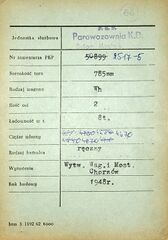 Jednostka służbowa
P.K.P.
Parowozownia K.D.
Nr inwentarza PKP 50899 8517-5
Szerokość toru 785mm
Rodzaj wagonu Wh
Ilość osi 2
Ładowność w t. 8t.
Ciężar własny 4670
Rodzaj hamulca ręczny
Wytwórnia Wytw. Wag. i Most.
Chorzów
Rok budowy 1948r.